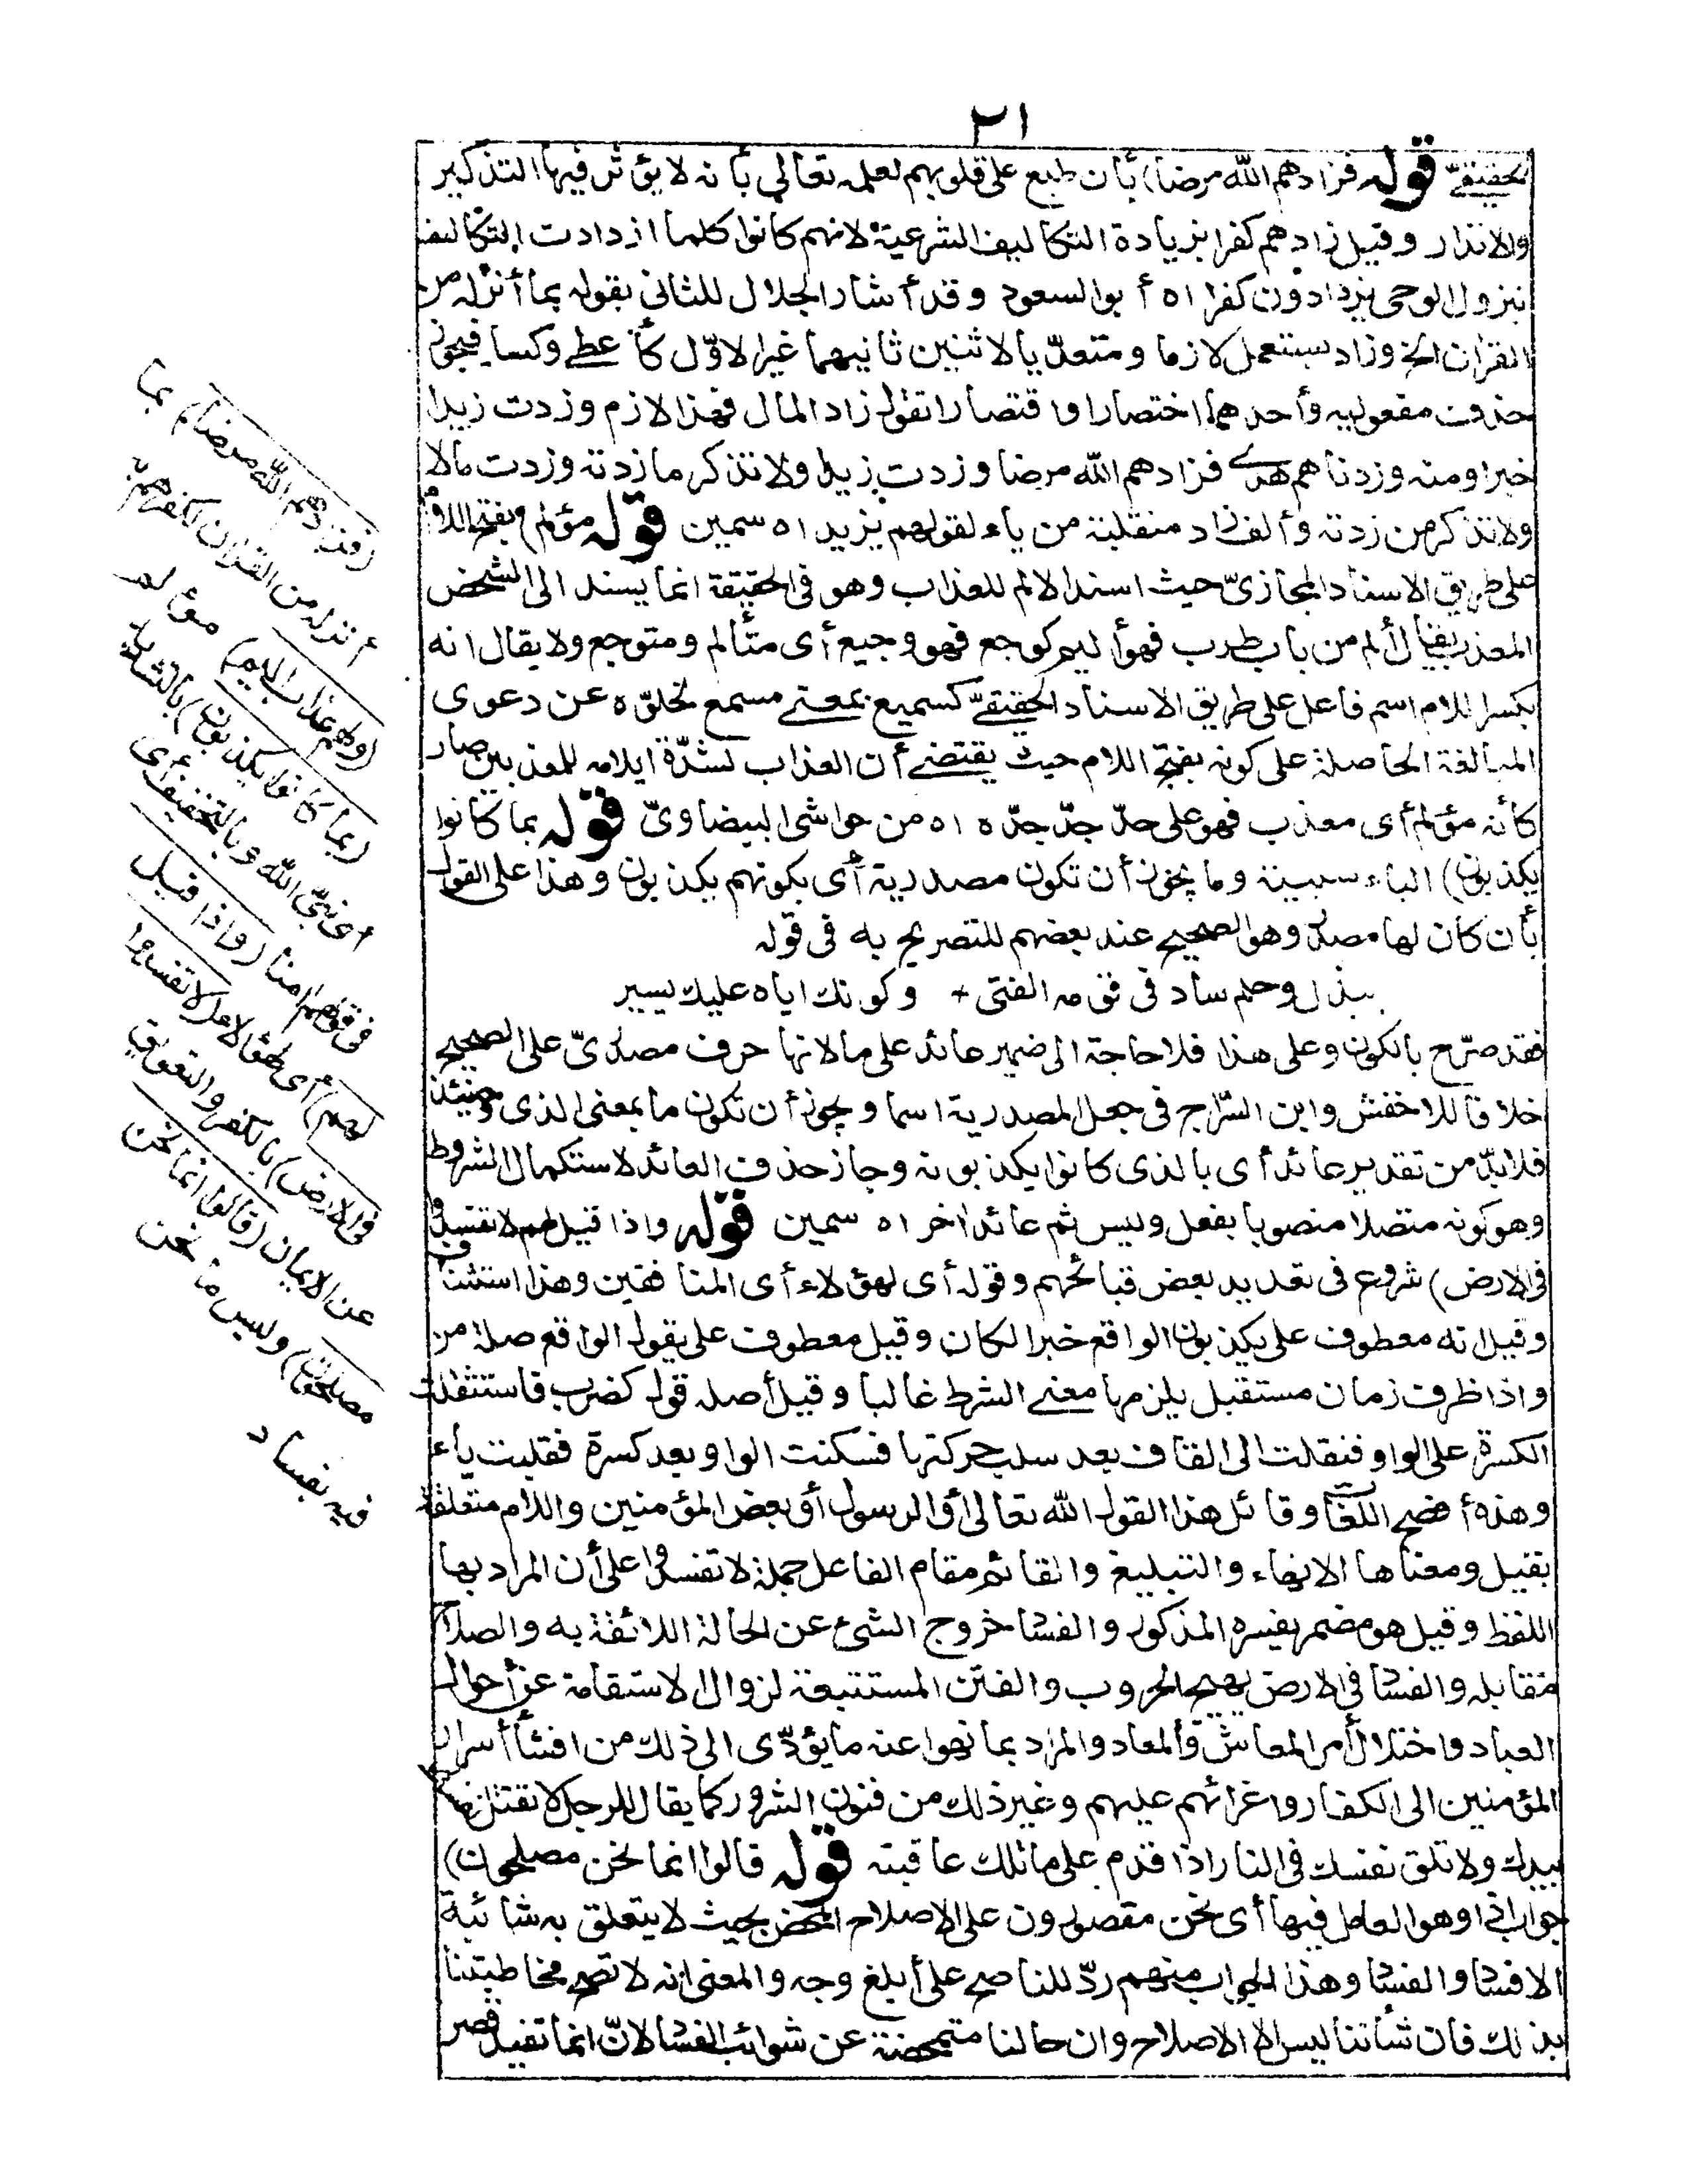 ٢١
الحقيقيّ قوله فزادهم الله مرضا) بأن طبع على قلوبهم لعلمه تعالى بأنه لا يؤثر فيها التذكير
والانذار وقيل زادهم كفرا بزيادة التكاليف الشرعية لانهم كانوا كلما ازدادت التكاليف
بنزول الوحى يزدادون كفرا اه أبو السعود وقد أشار الجلال للثانى بقوله بما أنزله من
القرآن الخ وزاد يستعمل لازما ومتعدّيا لاثنين ثانيهما غير الاوّل كأعطى وكسا فيجوز
حذف مفعوليه وأحدهما اختصارا واقتصارا تقول زاد المال فهذا لازم وزدت زيدا
خيرا ومنه وزدناهم هدى فزادهم الله مرضا وزدت زيدا ولا تذكر ما زدته وزدت مالا
ولا تذكر من زدته وألف زاد منقلبة من ياء لقولهم يزيد اه سمين قوله مؤلم) بفتح اللام
على طريق الاسناد المجازىّ حيث اسند الالم للعذاب وهو فى الحقيقة انما يسند الى الشخص
المعذب يقال ألم من باب طرب فهو أليم كوجع فهو وجيع أى متألم ومتوجع ولا يقال انه
بكسر اللام اسم فاعل على طريق الاسناد الحقيقىّ كسميع بمعنى مسمع لخلوّه عن دعوى
المبالغة الحاصلة على كونه بفتح اللام حيث يقتضى أن العذاب لشدّة ايلامه للمعذبين صار
كأنه مؤلم أى معذب فهو على حدّ جدّ جدّه اه من حواشى البيضاوىّ قوله بما كانوا
يكذبون) الباء سببية وما يجوز أن تكون مصدرية أى بكونهم يكذبون وهذا على القول
بأن كان لها مصدر وهو الصحيح عند بعضهم للتصريح به فى قوله
ببذل وحلم ساد فى قومه الفتى + وكونك اياه عليك يسير
فقد صرّح بالكون وعلى هذا فلا حاجة الى ضمير عائد على ما لانها حرف مصدرىّ على الصحيح
خلافا للاخفش وابن السّراج فى جعل المصدرية اسما ويجوز أن تكون ما بمعنى الذى وحينئذ
فلابدّ من تقدير عائد أى بالذى كانوا يكذبونه وجاز حذف العائد لاستكمال الشروط
وهو كونه متصلا منصوبا بفعل وليس ثم عائد اخر اه سمين قوله واذا قيل لهم لا تفسدوا
فى الارض) شروع فى تعديد بعض قبائحهم وقوله أى لهؤلاء أى المنافقين وهذا استئناف
وقيل انه معطوف على يكذبون الواقع خبرا لكان وقيل معطوف على يقول الواقع صلة من
واذا ظرف زمان مستقبل يلزمها معنى الشرط غالبا وقيل أصله قول كضرب فاستثقلت
الكسرة على الواو فنقلت الى القاف بعد سلب حركتها فسكنت الواو بعد كسرة فقلبت ياء
وهذه أفصح اللغات وقائل هذا القول الله تعالى أو الرسول أو بعض المؤمنين واللام متعلقة
بقيل ومعناها الانهاء والتبليغ والقائم مقام الفاعل جملة لا تفسدوا على أن المراد بها
اللفظ وقيل هو مضمر يفسره المذكور والفساد خروج الشئ عن الحالة اللائقة به والصلاح
مقابله والفساد فى الارض تهييج الحروب والفتن المستتبعة لزوال الاستقامة عن أحوال
العباد واختلال أمر المعاش والمعاد والمراد بما نهوا عنه ما يؤدّى الى ذلك من افشاء أسرار
المؤمنين الى الكفار واغرائهم عليهم وغير ذلك من فنون الشرور كما يقال للرجل لا تقتل نفسك
بيدك ولا تلق نفسك فى النار اذا قدم على ما تلك عاقبته قوله قالوا انما نحن مصلحون)
جواب اذا وهو العامل فيها أى نحن مقصورون على الاصلاح المحض بحيث لا يتعلق به شائبة
الافساد والفساد وهذا الجواب منهم ردّ للناصح على أبلغ وجه والمعنى انه لا تصح مخاطبتنا
بذلك فان شأننا ليس الا الاصلاح وان حالنا متمحضة عن شوائب الفساد لانّ انما تفيد قصر
(فزادهم الله مرضا) بما
أنزله من القرآن لكفرهم به
(ولهم عذاب اليم) مؤلم
(بما كانوا يكذبون) بالتشديد
أى نبىّ الله وبالتخفيف أى
فى قولهم امنا (واذا قيل
لهم) أى لهؤلاء (لا تفسدوا
فى الارض) بالكفر والتعويق
عن الايمان (قالوا انما نحن
مصلحون) وليس ما نحن
فيه بفساد